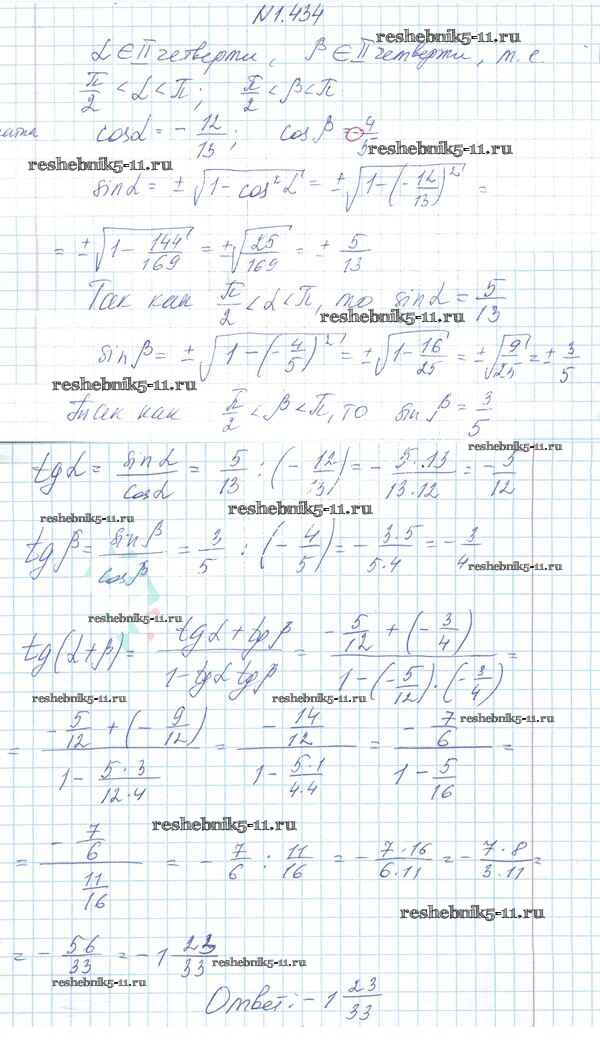 N1.434
reshebnik5-11.ru
α ∈ II четверти, β ∈ II четверти, т.е.
π/2 < α < π; π/2 < β < π
cos α = - 12/13; cos β = - 4/5
reshebnik5-11.ru
reshebnik5-11.ru
sin α = ± √(1 - cos² α) = ± √(1 - (- 12/13)²) =
= ± √(1 - 144/169) = ± √(25/169) = ± 5/13
Так как π/2 < α < π, то sin α = 5/13
reshebnik5-11.ru
sin β = ± √(1 - (- 4/5)²) = ± √(1 - 16/25) = ± √(9/25) = ± 3/5
reshebnik5-11.ru
Так как π/2 < β < π, то sin β = 3/5
reshebnik5-11.ru
tg α = sin α / cos α = 5/13 : (- 12/13) = - 5·13/13·12 = - 5/12
reshebnik5-11.ru
reshebnik5-11.ru
tg β = sin β / cos β = 3/5 : (- 4/5) = - 3·5/5·4 = - 3/4
reshebnik5-11.ru
reshebnik5-11.ru
tg(α+β) = (tg α + tg β)/(1 - tg α tg β) = (- 5/12 + (- 3/4))/(1 - (- 5/12)·(- 3/4)) =
reshebnik5-11.ru
reshebnik5-11.ru
reshebnik5-11.ru
= (- 5/12 + (- 9/12))/(1 - 5·3/12·4) = (- 14/12)/(1 - 5·1/4·4) = (- 7/6)/(1 - 5/16) =
reshebnik5-11.ru
= (- 7/6)/(11/16) = - 7/6 : 11/16 = - 7·16/6·11 = - 7·8/3·11 =
reshebnik5-11.ru
= - 56/33 = - 1 23/33
reshebnik5-11.ru
reshebnik5-11.ru
Ответ: - 1 23/33